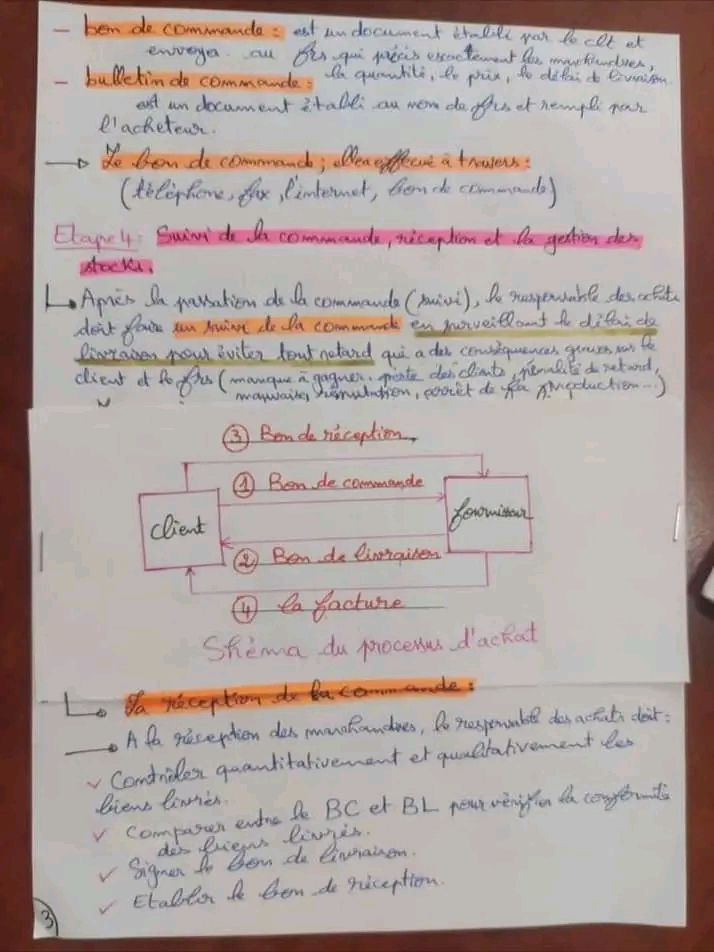 - bon de commande : est un document établi par le clt et
envoya au frs qui précis exactement les marchandises,
la quantité, le prix, le délai de livraison
- bulletin de commande :
est un document établi au nom de frs et rempli par
l'acheteur.
→ Le bon de commande ; elle effecué à travers :
(téléphone, fax, l'internet, bon de commande)
Etape 4 : Suivi de la commande, réception et la gestion des
stocks.
Après la passation de la commande (suivi), le responsable des achats
doit faire un suivi de la commande en surveillant le délai de
livraison pour éviter tout retard qui a des conséquences graves sur le
client et le frs (manque à gagner, perte des clients, pénalité de retard,
mauvaise réputation, arrêt de la production...)
③ Bon de réception
① Bon de commande
client
fournisseur
② Bon de livraison
④ la facture
Shéma du processus d'achat
La réception de la commande :
A la réception des marchandises, le responsable des achats doit :
✓ Contrôler quantitativement et qualitativement les
biens livrés.
✓ Comparer entre le BC et BL pour vérifier la conformité
des biens livrés.
✓ Signer le bon de livraison.
✓ Etablir le bon de réception.
3